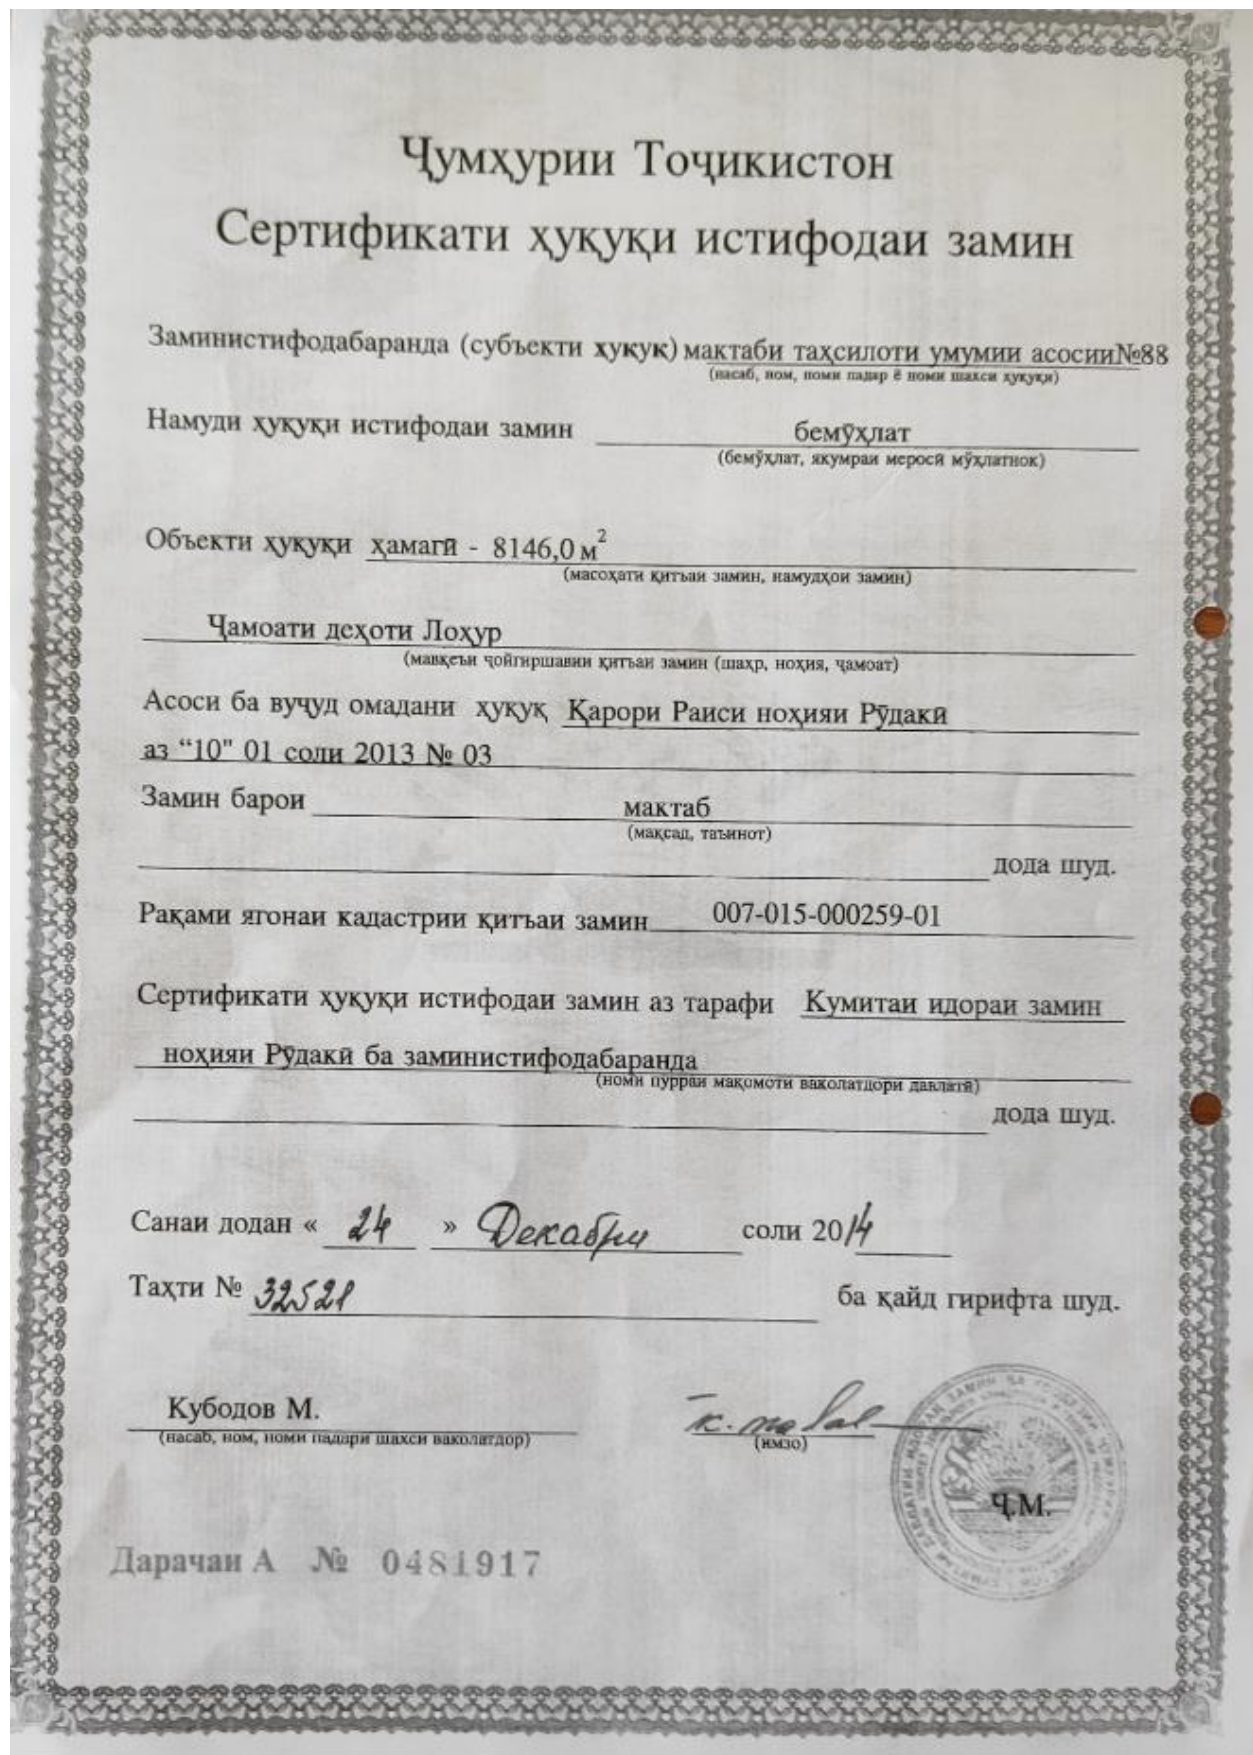 Ҷумҳурии Тоҷикистон
Сертификати ҳуқуқи истифодаи замин
Заминистифодабаранда (субъекти ҳуқуқ) мактаби таҳсилоти умумии асосии№88
(насаб, ном, номи падар ё номи шахси ҳуқуқӣ)
Намуди ҳуқуқи истифодаи замин бемӯҳлат
(бемӯҳлат, якумраи меросӣ мӯҳлатнок)
Объекти ҳуқуқи ҳамагӣ - 8146,0 м²
(масоҳати қитъаи замин, намудҳои замин)
Ҷамоати деҳоти Лоҳур
(мавқеъи ҷойгиршавии қитъаи замин (шаҳр, ноҳия, ҷамоат)
Асоси ба вуҷуд омадани ҳуқуқ Қарори Раиси ноҳияи Рӯдакӣ
аз “10" 01 соли 2013 № 03
Замин барои мактаб
(мақсад, таъинот)
дода шуд.
Рақами ягонаи кадастрии қитъаи замин 007-015-000259-01
Сертификати ҳуқуқи истифодаи замин аз тарафи Кумитаи идораи замин
ноҳияи Рӯдакӣ ба заминистифодабаранда
(номи пурраи мақомоти ваколатдори давлатӣ)
дода шуд.
Санаи додан « 24 » Декабри соли 2014
Таҳти № 32521 ба қайд гирифта шуд.
Кубодов М.
(насаб, ном, номи падари шахси ваколатдор)
(имзо)
Ҷ.М.
Дараҷаи А № 0481917